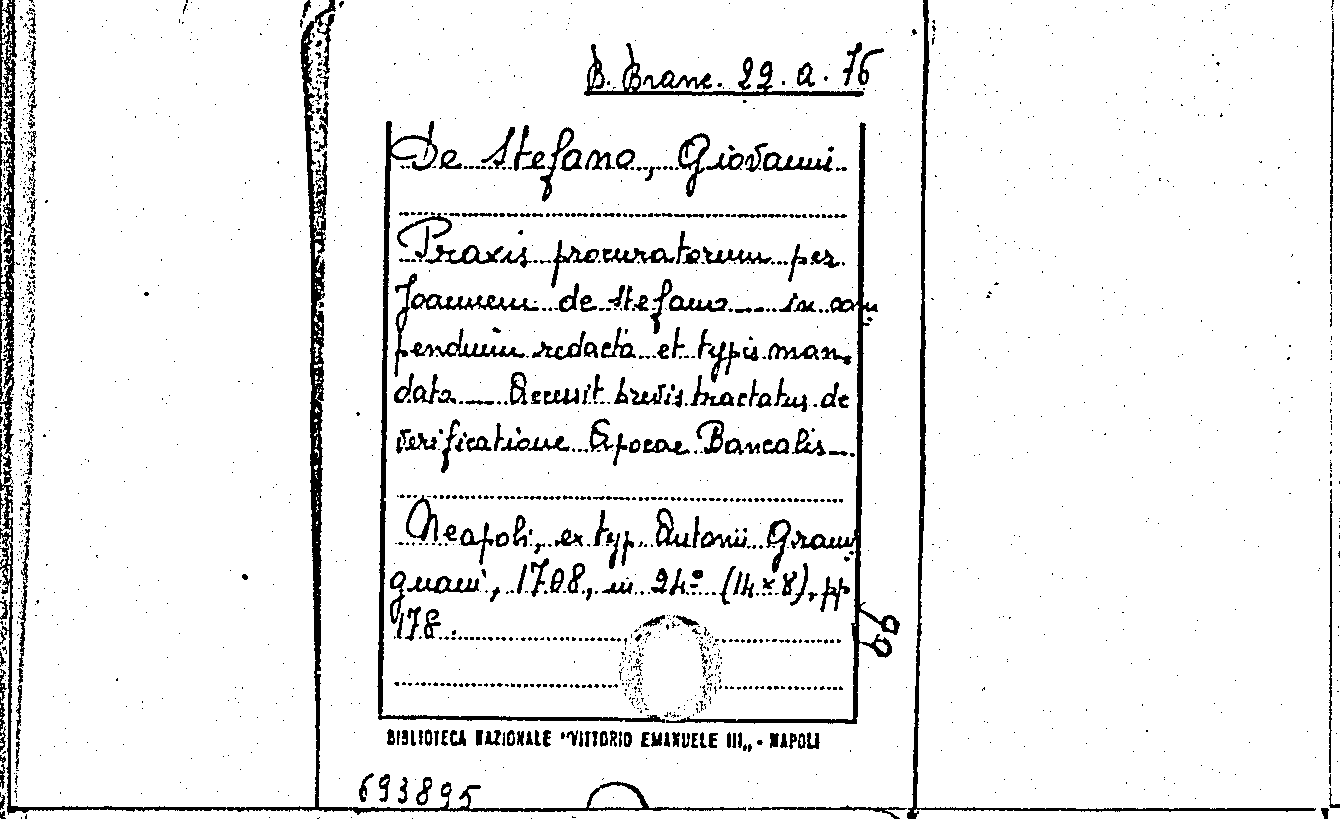 B. Branc. 22. a. 76
De Stefano, Giovanni
Praxis procuratorum per
Joannem de Stefano __ in com
pendium redacta et typis man.
data __ Accessit brevis tractatus de
verificatione Apocae Bancalis __.
Neapoli, ex typ. Antonii Grami
gnani, 1708, in 24º (14 x 8), pp
178.
BIBLIOTECA NAZIONALE "VITTORIO EMANUELE III„ - NAPOLI
693895